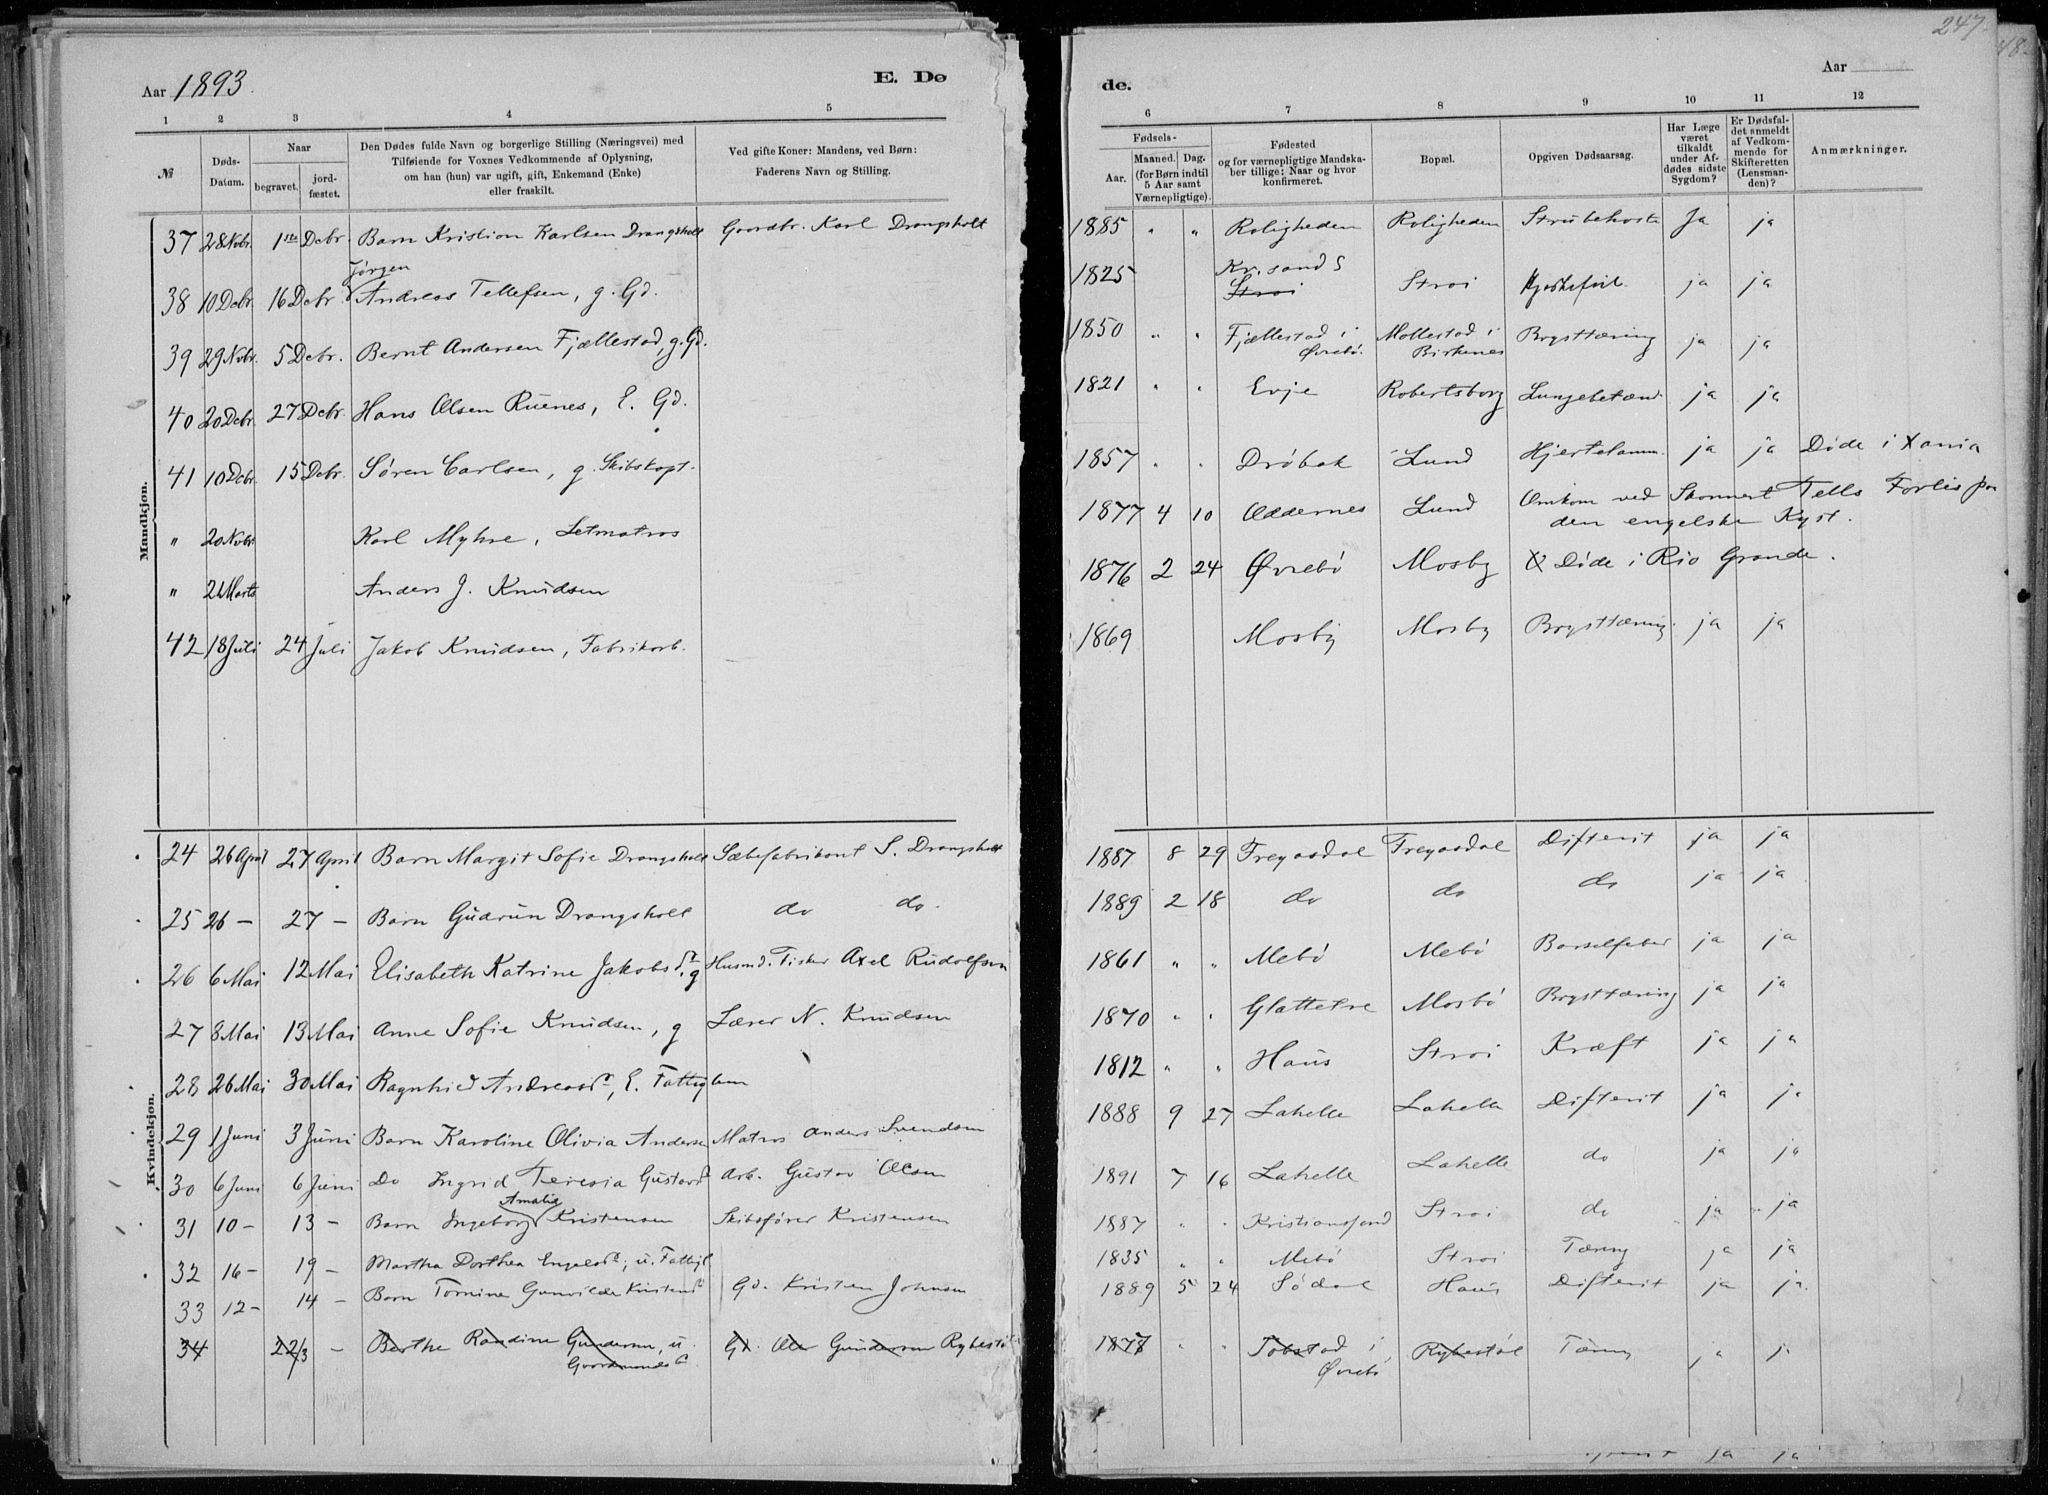 247
48
Aar 1893.
E. Dø
de.
Aar
1 2 3 4 5
6 7 8 9 10 11 12
№
Døds-
Datum.
Naar
begravet.
jord-
fæstet.
Den Dødes fulde Navn og borgerlige Stilling (Næringsvei) med
Tilføiende for Voxnes Vedkommende af Oplysning,
om han (hun) var ugift, gift, Enkemand (Enke)
eller fraskilt.
Ved gifte Koner: Mandens, ved Børn:
Faderens Navn og Stilling.
Fødsels-
Aar.
Maaned. Dag.
(for Børn indtil
5 Aar samt
Værnepligtige).
Fødested
og for værnepligtige Mandska-
ber tillige: Naar og hvor
konfirmeret.
Bopæl.
Opgiven Dødsaarsag.
Har Læge
været
tilkaldt
under Af-
dødes sidste
Sygdom?
Er Dødsfal-
det anmeldt
af Vedkom-
mende for
Skifteretten
(Lensman-
den)?
Anmærkninger.
Mandkjøn.
37 28 Nvbr. 1ste Dcbr. Barn Kristian Karlsen Drangsholt Gaardbr. Karl Drangsholt 1885 " " Roligheden Roligheden Strubehoste Ja ja
Jørgen Kr.sand S
38 10 Dcbr. 16 Dcbr. Andreas Tellefsen, g. Gd. 1825 Strai Strai Hjertefeil ja ja
39 29 Nvbr. 5 Dcbr. Bernt Andersen Fjællestad, g. Gd. 1850 " " Fjællestad i Mollestad i Brysttæring ja ja
Øvrebö. Birkenes
40 20 Dcbr. 27 Dcbr. Hans Olsen Ruenes, E. Gd. 1821 " " Evje Robertsborg Lungebetænd. ja ja
41 10 Dcbr. 15 Dcbr. Søren Carlsen, g. Skibskapt. 1857 " " Dröbak Lund Hjertelamm. ja ja Døde i Xania
" 20 Nvbr. Karl Myhre, Letmatros 1877 4 10 Oddernes Lund Omkom ved Skonnert Tells Forlis paa
den engelske Kyst.
" 21 Marts Anders J. Knudsen 1876 2 24 Øvrebö Mosby X Døde i Rio Grande.
42 18 Juli 24 Juli Jakob Knudsen, Fabrikarb. 1869 Mosby Mosby Brysttæring ja ja
Kvindekjøn.
24 26 April 27 April Barn Margit Sofie Drangsholt Sæbefabrikant S. Drangsholt 1887 8 29 Freyasdal Freyasdal Difterit ja ja
25 26 - 27 - Barn Gudrun Drangsholt do do. 1889 2 18 do do do ja ja
26 6 Mai 12 Mai Elisabeth Katrine Jakobsdr. g Husmd. Fisker Axel Rudolfsen 1861 " " Mebö Mebö Barselfeber ja ja
27 8 Mai 13 Mai Anne Sofie Knudsen, g Lærer N. Knudsen 1870 " " Glattetre Mosbö Brysttæring ja ja
28 26 Mai 30 Mai Ragnhild Andreasdr, E. Fattiglem 1812 " " Haus Strai Kræft ja ja
29 1 Juni 3 Juni Barn Karoline Olivia Andersen Matros Anders Svendsen 1888 9 27 Lahelle Lahelle Difterit ja ja
30 6 Juni 6 Juni Do Ingrid Teresia Gustavsd Arb. Gustav Olsen 1891 7 16 Lahelle Lahelle do ja ja
Amalie
31 10 - 13 - Barn Ingeborg Kristensen Skibsfører Kristensen 1887 " " Kristiansfund Strai do ja ja
32 16 - 19 - Martha Dorthea Engelsd, u. Fattigl 1835 " " Mebö Strai Tæring ja ja
33 12 - 14 - Barn Tomine Gunvilde Kristensd Gd. Kristen Johnsen 1889 5 24 Södal Haus Difterit ja ja.
34 22/3 - Berthe Randine Gundersen, u. Gd. Ole Gundersen Rybestöl 1877 " " Tobstad i Rybestöl Tæring ja j
Gaardmandsd Øvrebö
ja ja